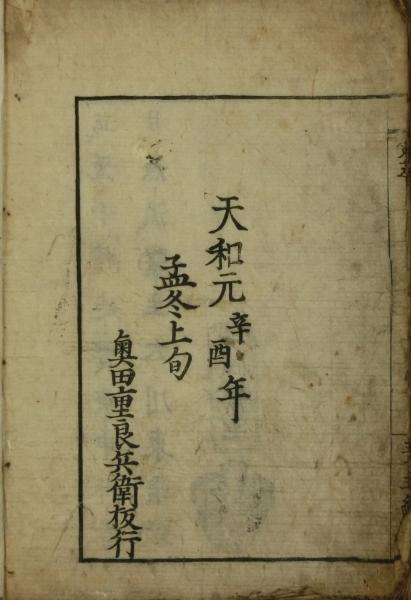 天和元辛酉年
孟冬上旬
奥田重良兵衛板行